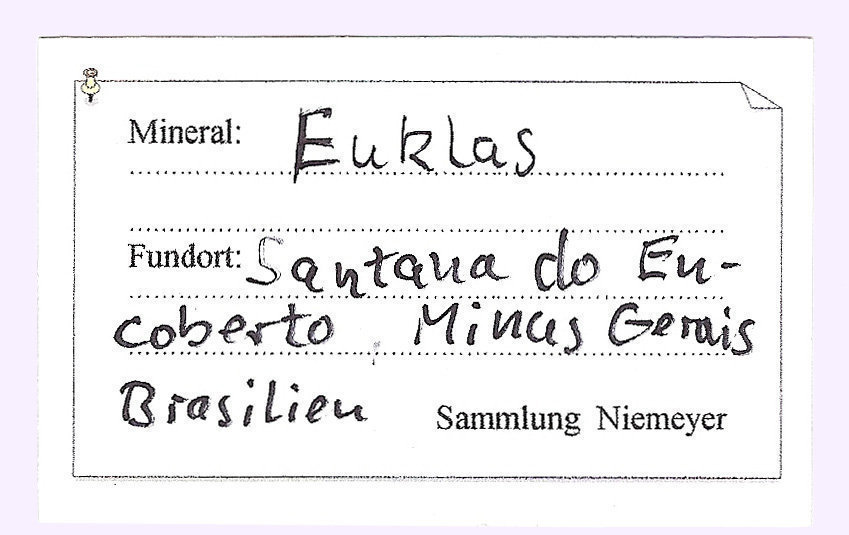 Mineral: Euklas
Fundort: Santana do En-
coberto, Minas Gerais
Brasilien Sammlung Niemeyer